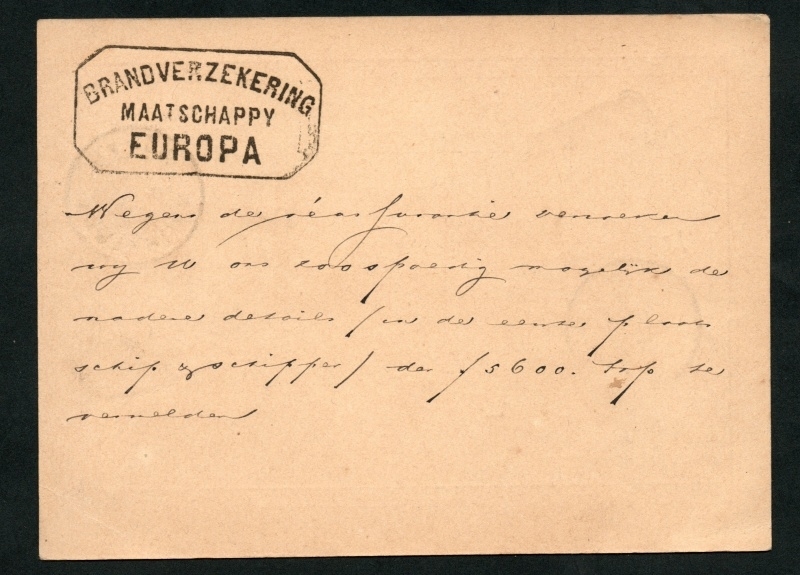 BRANDVERZEKERING
MAATSCHAPPY
EUROPA
Wegens de réassurantie verzoeken
wy U ons zoo spoedig mogelijk de
nadere details (in de eerste plaats
schip & schipper) der f 5600. top te
vermelden